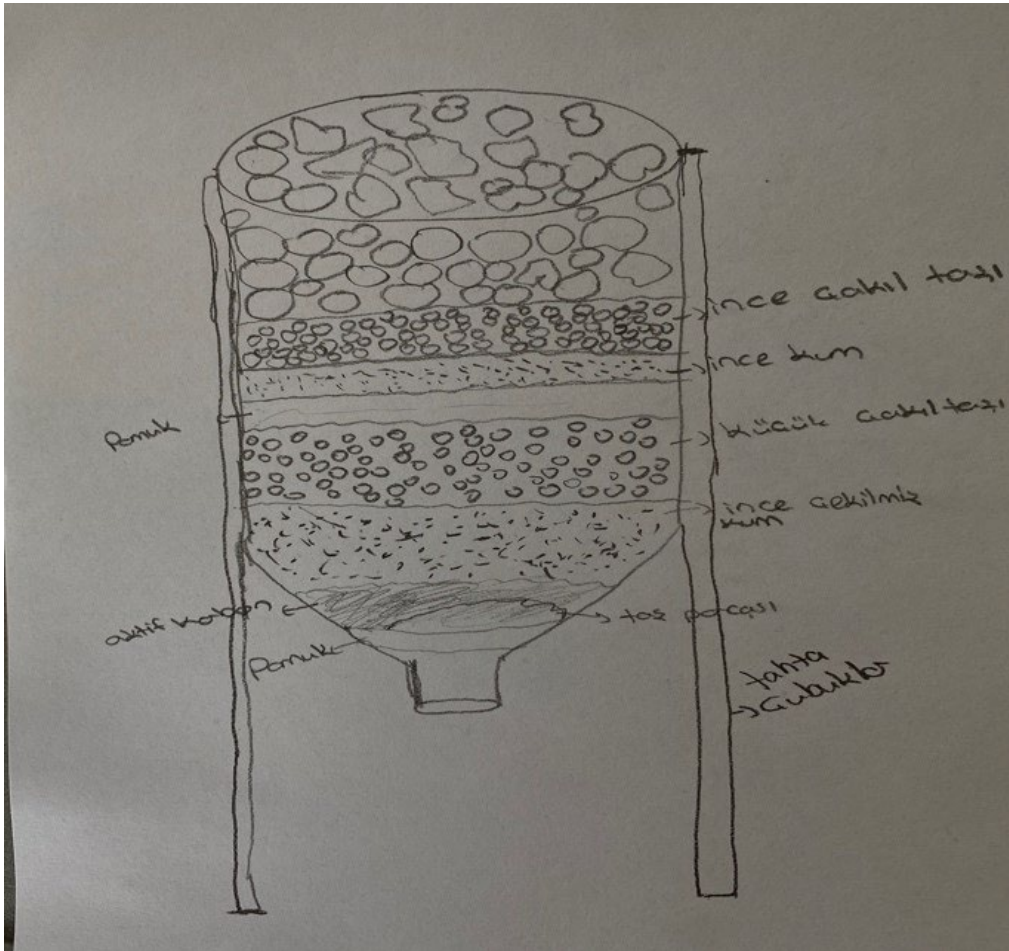 ince çakıl taşı
ince kum
Pamuk
küçük çakıl taşı
ince çekilmiş
kum
aktif karbon
taş parçası
Pamuk
tahta
çubuklar